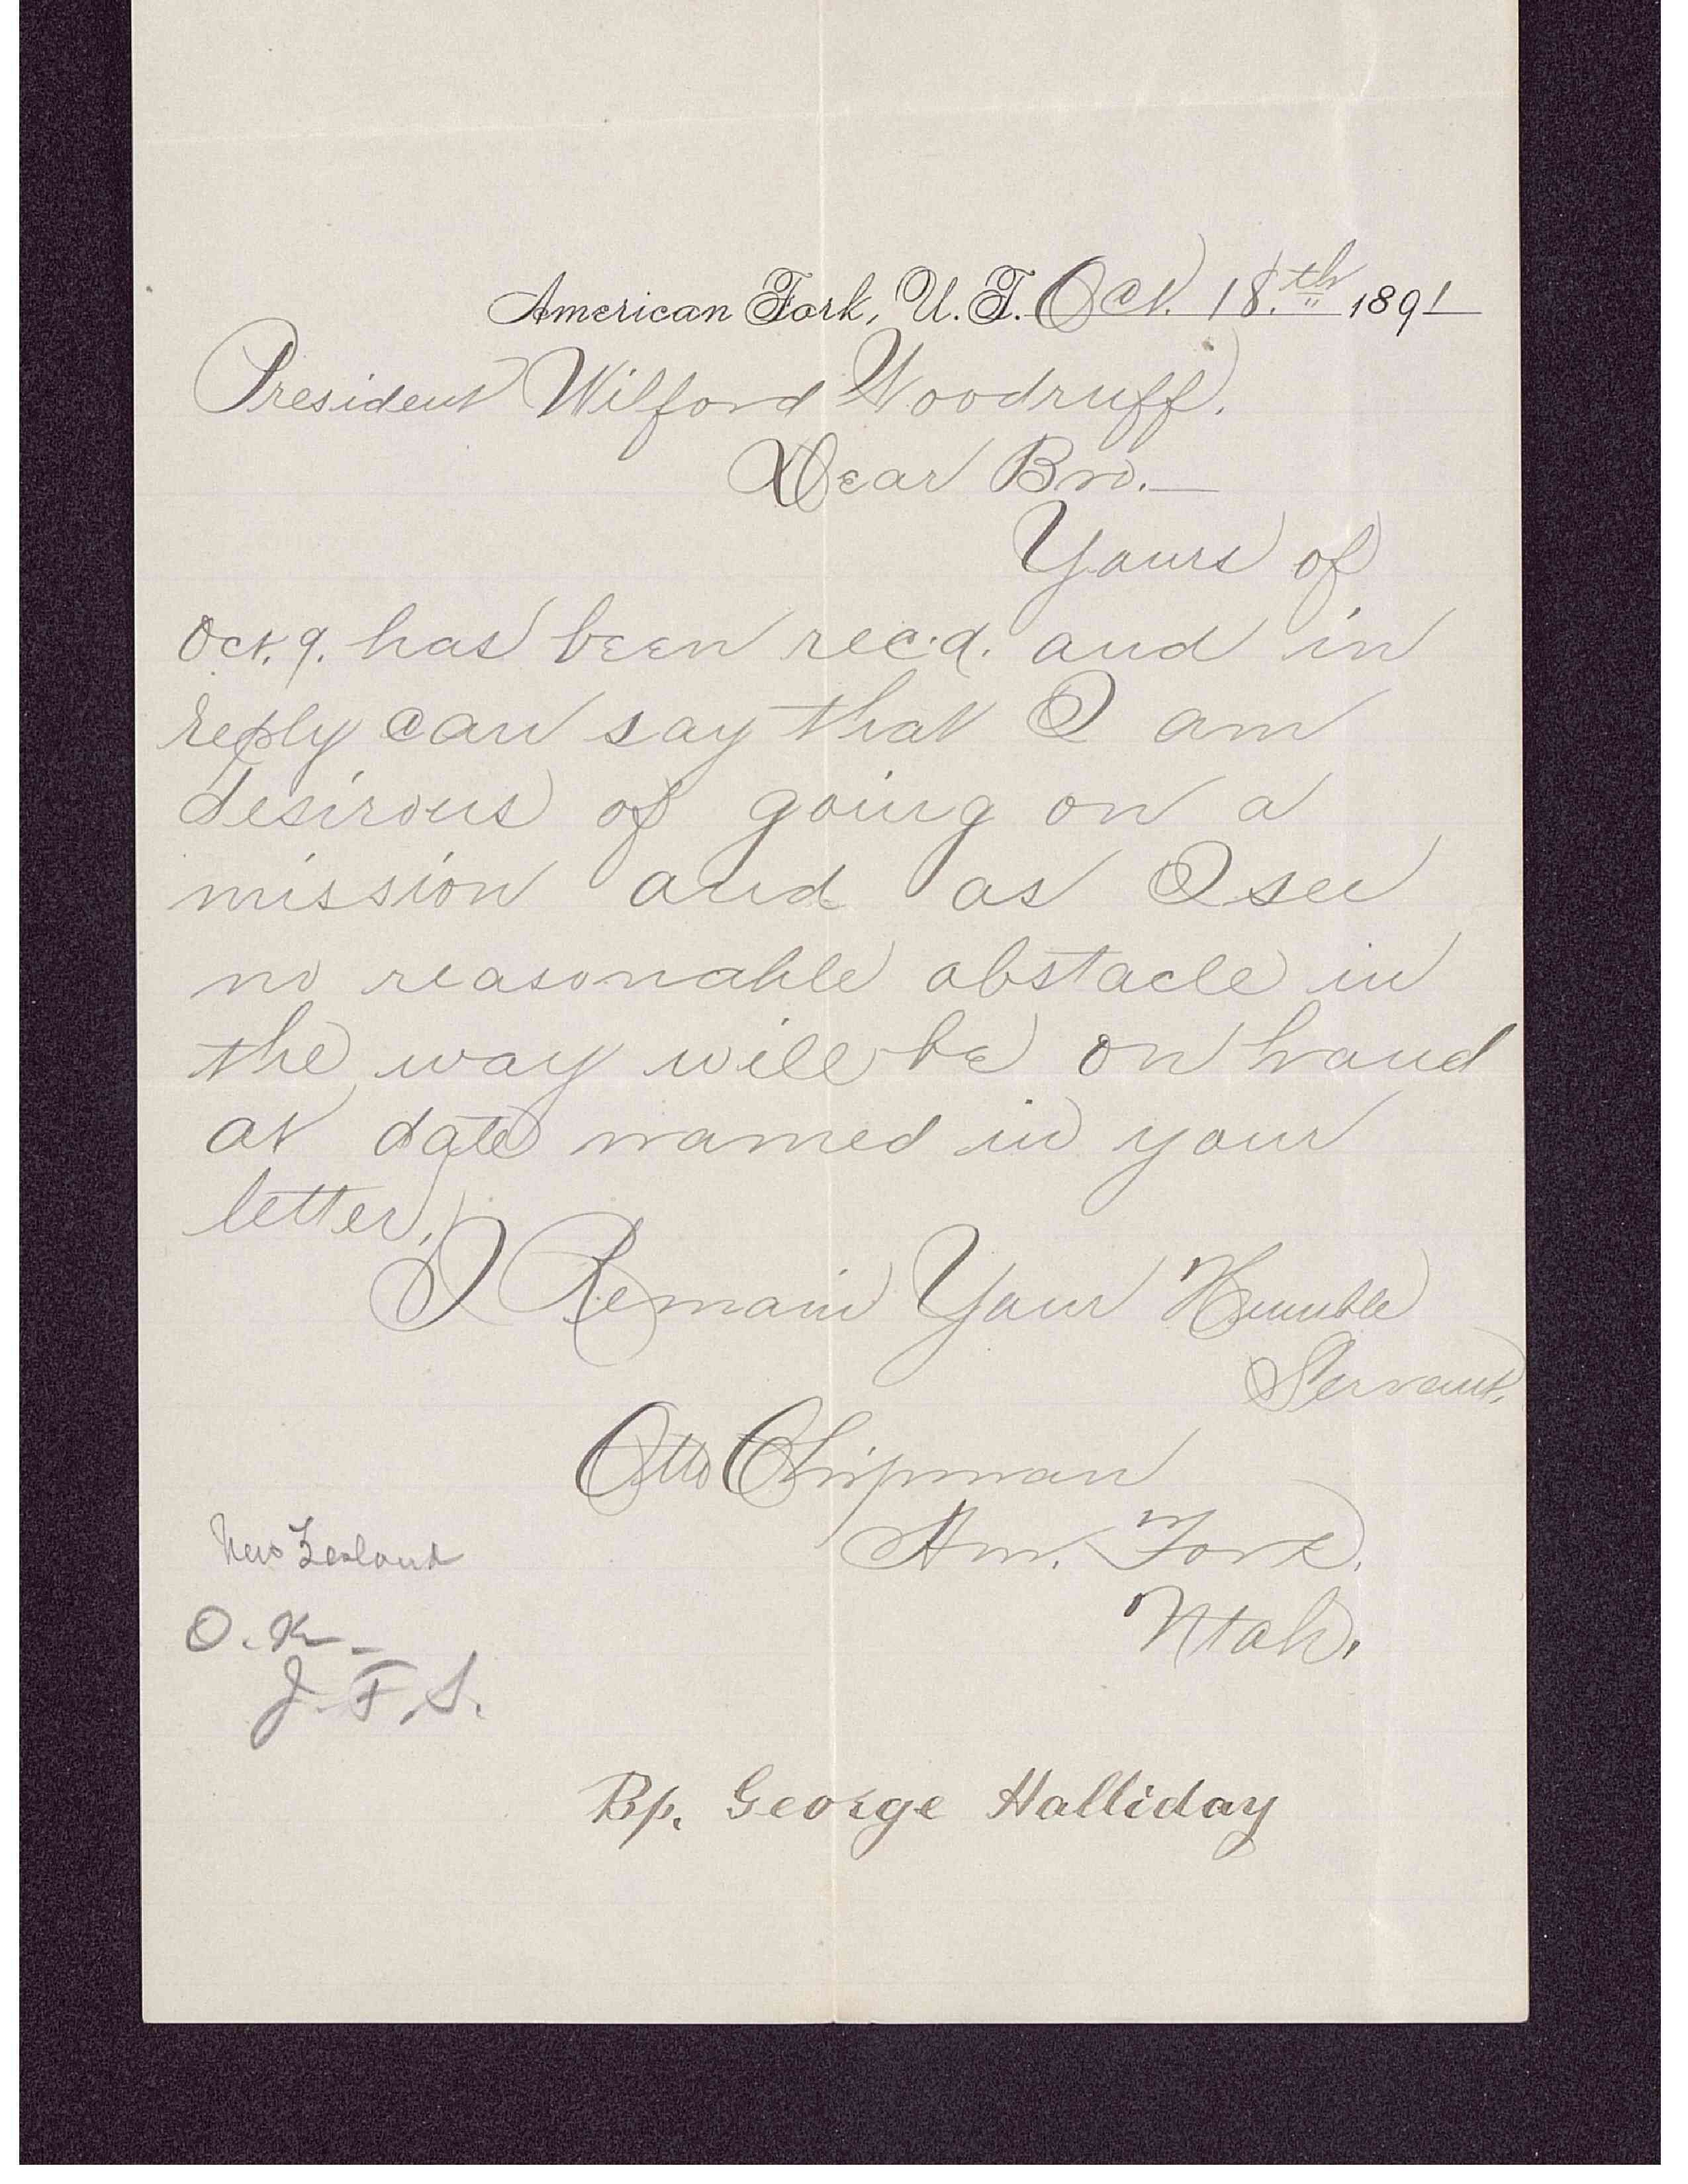 American Fork, U. T. Oct. 18.th 1891
President Wilford Woodruff.
Dear Bro.—
Yours of
Oct. 9. has been rec.d. and in
reply can say that I am
desirous of going on a
mission and as I see
no reasonable obstacle in
the way will be on hand
at date named in your
letter.
I Remain Your Humble
Servant,
Otto Chipman
Am. Fork.
Utah.
New Zealand
O. K. -
J. F. S.
Bp. George Halliday